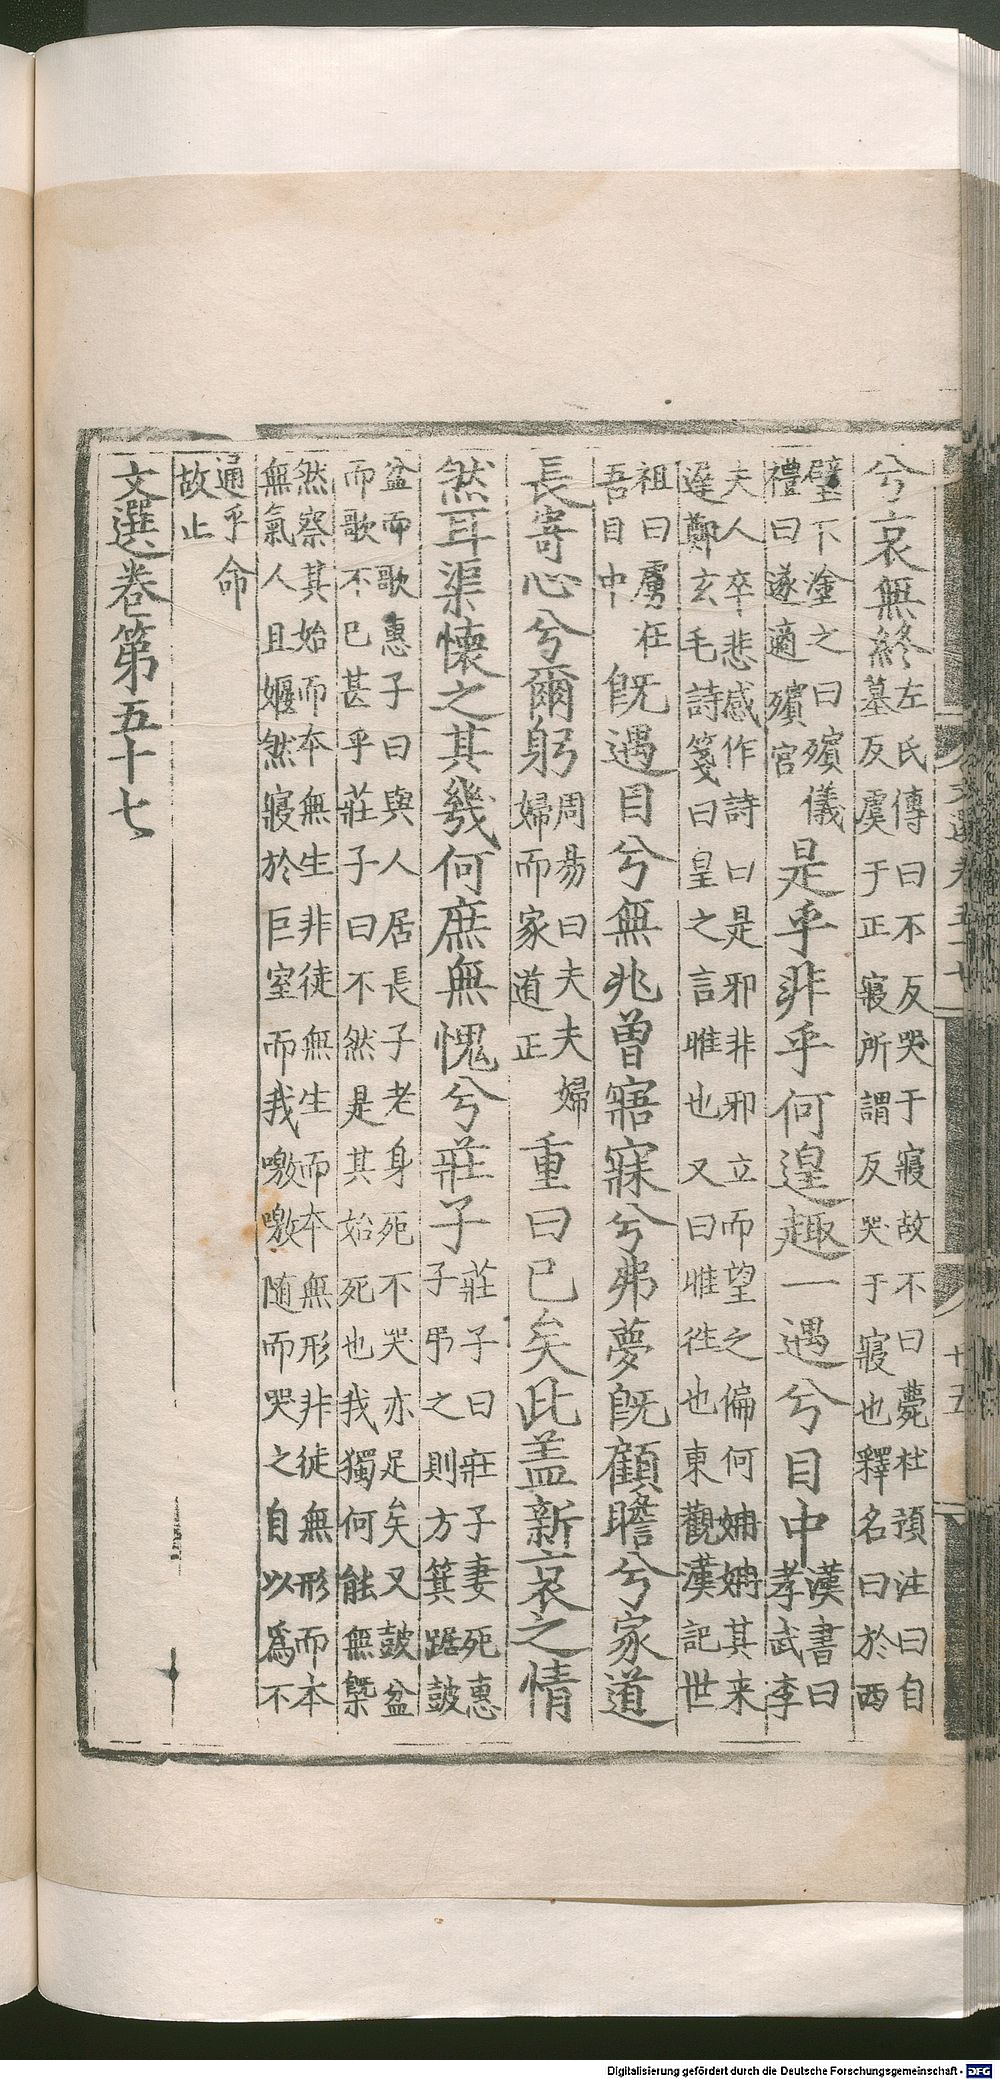 兮哀無終左氏傳曰不反哭于寢故不曰薨杜預注曰自
墓反虞于正寢所謂反哭于寢也釋名曰於西
壁下塗之曰殯儀
禮曰遂適殯宮是乎非乎何遑趣一遇兮目中漢書曰
孝武李
夫人卒悲感作詩曰是邪非邪立而望之偏何姍姍其来
遲鄭玄毛詩箋曰皇之言暀也又曰暀往也東觀漢記世
祖曰虜在
吾目中旣遇目兮無兆曾寤寐兮弗夢旣顧瞻兮家道
長寄心兮爾躬周易曰夫夫婦
婦而家道正重曰已矣此盖新哀之情
然耳渠懷之其幾何庶無愧兮莊子莊子曰莊子妻死惠
子弔之則方箕踞鼓
盆而歌惠子曰與人居長子老身死不哭亦足矣又鼓盆
而歌不已甚乎莊子曰不然是其始死也我獨何能無槩
然察其始而本無生非徒無生而本無形非徒無形而本
無氣人且偃然寢於巨室而我噭噭随而哭之自以爲不
通乎命
故止
文選卷第五十七
十五
Digitalisierung gefördert durch die Deutsche Forschungsgemeinschaft - DFG